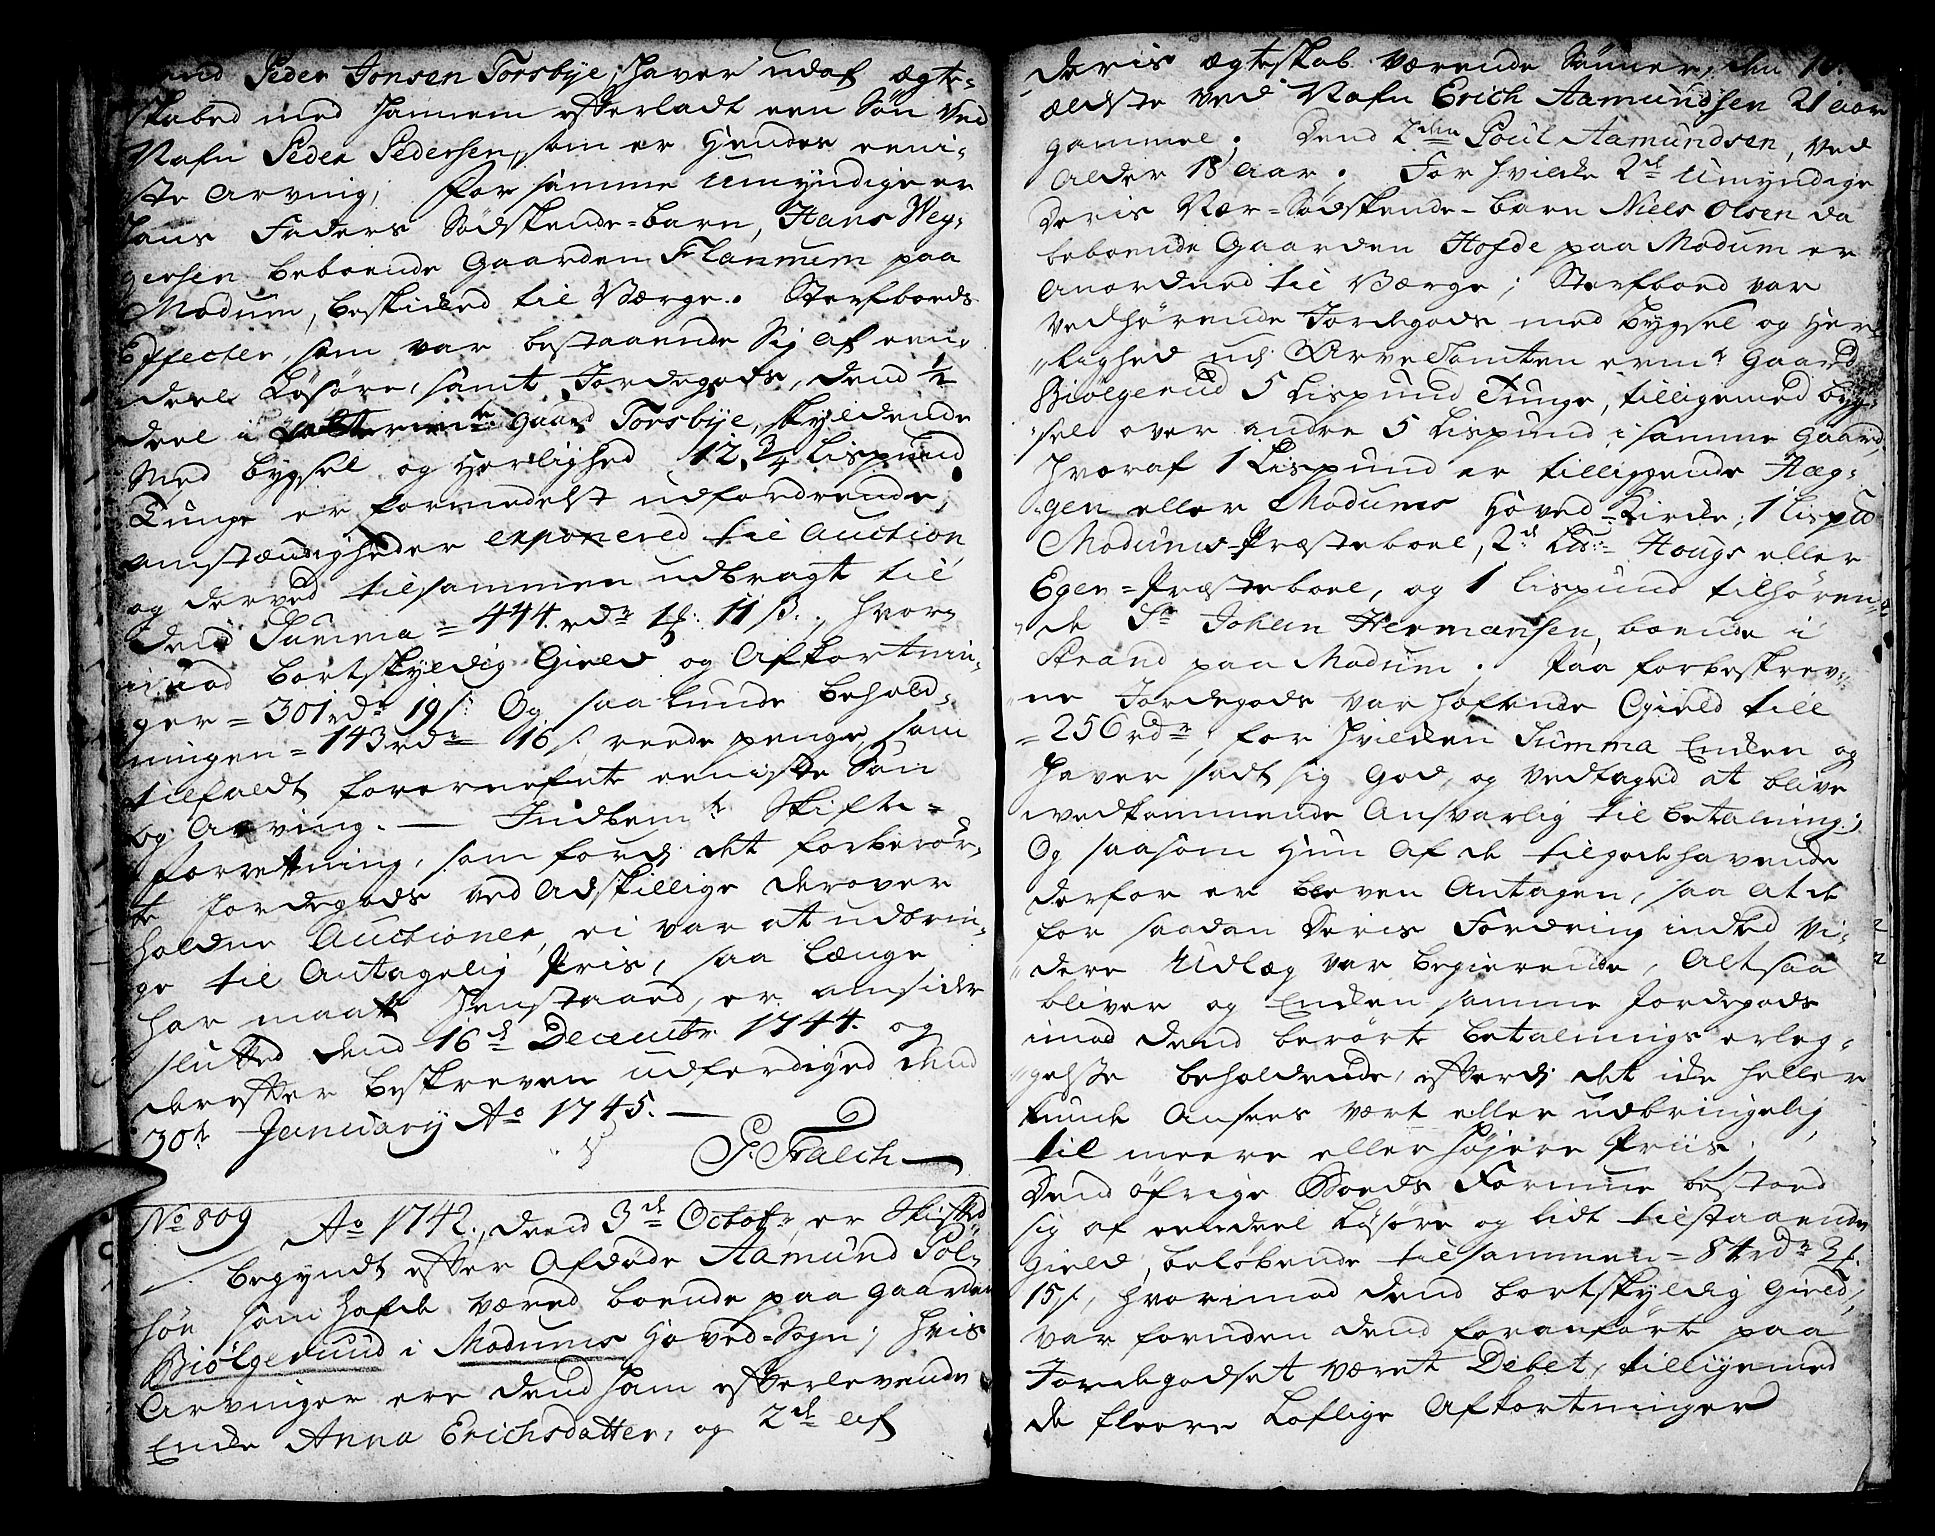 Peder Jonsen Torsbye, haver udaf ægte-
skabed med hannem efterladt een Søn ved
Nafn Peder Pedersen, som er hendes eeni-
ste Arving, for samme Umyndige er
hans Faders Sødskende-barn, Hans Wey-
gersen beboende Gaarden Flannum paa
Modum, beskikked til Værge. Sterfboeds
Effecter, som var bestaaende Sig af een-
deel Løsøre, samt Jordegods, dend 1/2
deel i Gaard Torsbye, skyldende
Med bygsel og Herlighed 12 3/4 Lispund
Tunge er formedelst udfordrende
omstændigheder exponered til Auction
og derved tilsammen udbragt til
dend Summa = 444 rdr 1 ʄ: 11 s., hvor-
imod bortskyldig Gield og Afkortnin-
ger = 301 rdr 19 s: Og saa kunde behold-
ningen = 143 rdr 16 s. reede penge, som
tilfaldt forernefnte eeniste Søn
og Arving. — Indbemte Skifte-
forretning, som fordj det forberør-
te Jordegods ved Adskillige derover
holdne Auctioner, ei var at udbrin-
ge til Antagelig Pris, saa længe
har maatt henstaaed, er omsider
slutted dend 16de Decembr. 1744. og
derefter beskreven udferdiged dend
30te January Ao 1745. —
P. Tralch
No 809 Ao 1742., dend 3de Octobr. er Skifted
begyndt efter Afdøde Aamund Pol-
søn som hafde været boende paa gaarden
Biølgerund i Modums Hoved-Sogn; hvis
Arvinger ere dend ham efterlevende
Enke Anna Erichsdatter, og 2de af
deris ægteskab værende Sønner, den
ældste ved Nafn Erich Aamundsen 21 aar
gammel. Dend 2den Poul Aamundsen, ved
Alder 18 aar. For hvilke 2de Umyndige
deris Nær-Sødskende-barn Niels Olsen da
beboende Gaarden Hofde paa Modum er
Anordned til Værge; Sterfboed var
vedhørende Jordegods med bygsel og Her-
lighed udj Arve Tomten Gaard
Biølgerud 5 Lispund Tunge, tilligemed byg-
sel over andre 5 Lispund i samme Gaard,
hvoraf 1 Lispund er tilliggende Hæg-
gen eller Modums Hoved-Kirke; 1 Lispd
Modums-Præsteboel, 2de Lis: Hougs eller
Eger-Præsteboel, og 1 Lispund tilhøren-
de Sr Johan Hermansen, boende i
Strand paa Modum. Paa forbeskrev-
ne Jordegods var haftende Gield till
= 256 rdr, for hvilken Summa Enken og
haver sadt sig God, og vedtaged at blive
vedkommende Ansvarlig til betaling;
Og saasom Hun af de tilgodehavende
derfor er bleven Antagen, saa at de
for saadan deris Fordring intked vi-
dere Udlæg var begierende, Altsaa
bliver og Enken samme Jordegods
imod dend berørte betalnings erleg-
gelse beholdende, efterdj det icke heller
kunde Ansees vært eller udbringelig
til meere eller højere Priis.
Dend øfrige Boeds Formue bestoed
sig af eendeel Løsøre og lidt tilstaaende
Gield, beløbende tilsammen = 84 rdr 3 ʄ.
15 s, hvorimod dend bortskyldig Gield,
var foruden dend foranførte paa
Jordegodset været Debet, tilligemed
de fleere Loflige Afkortninger